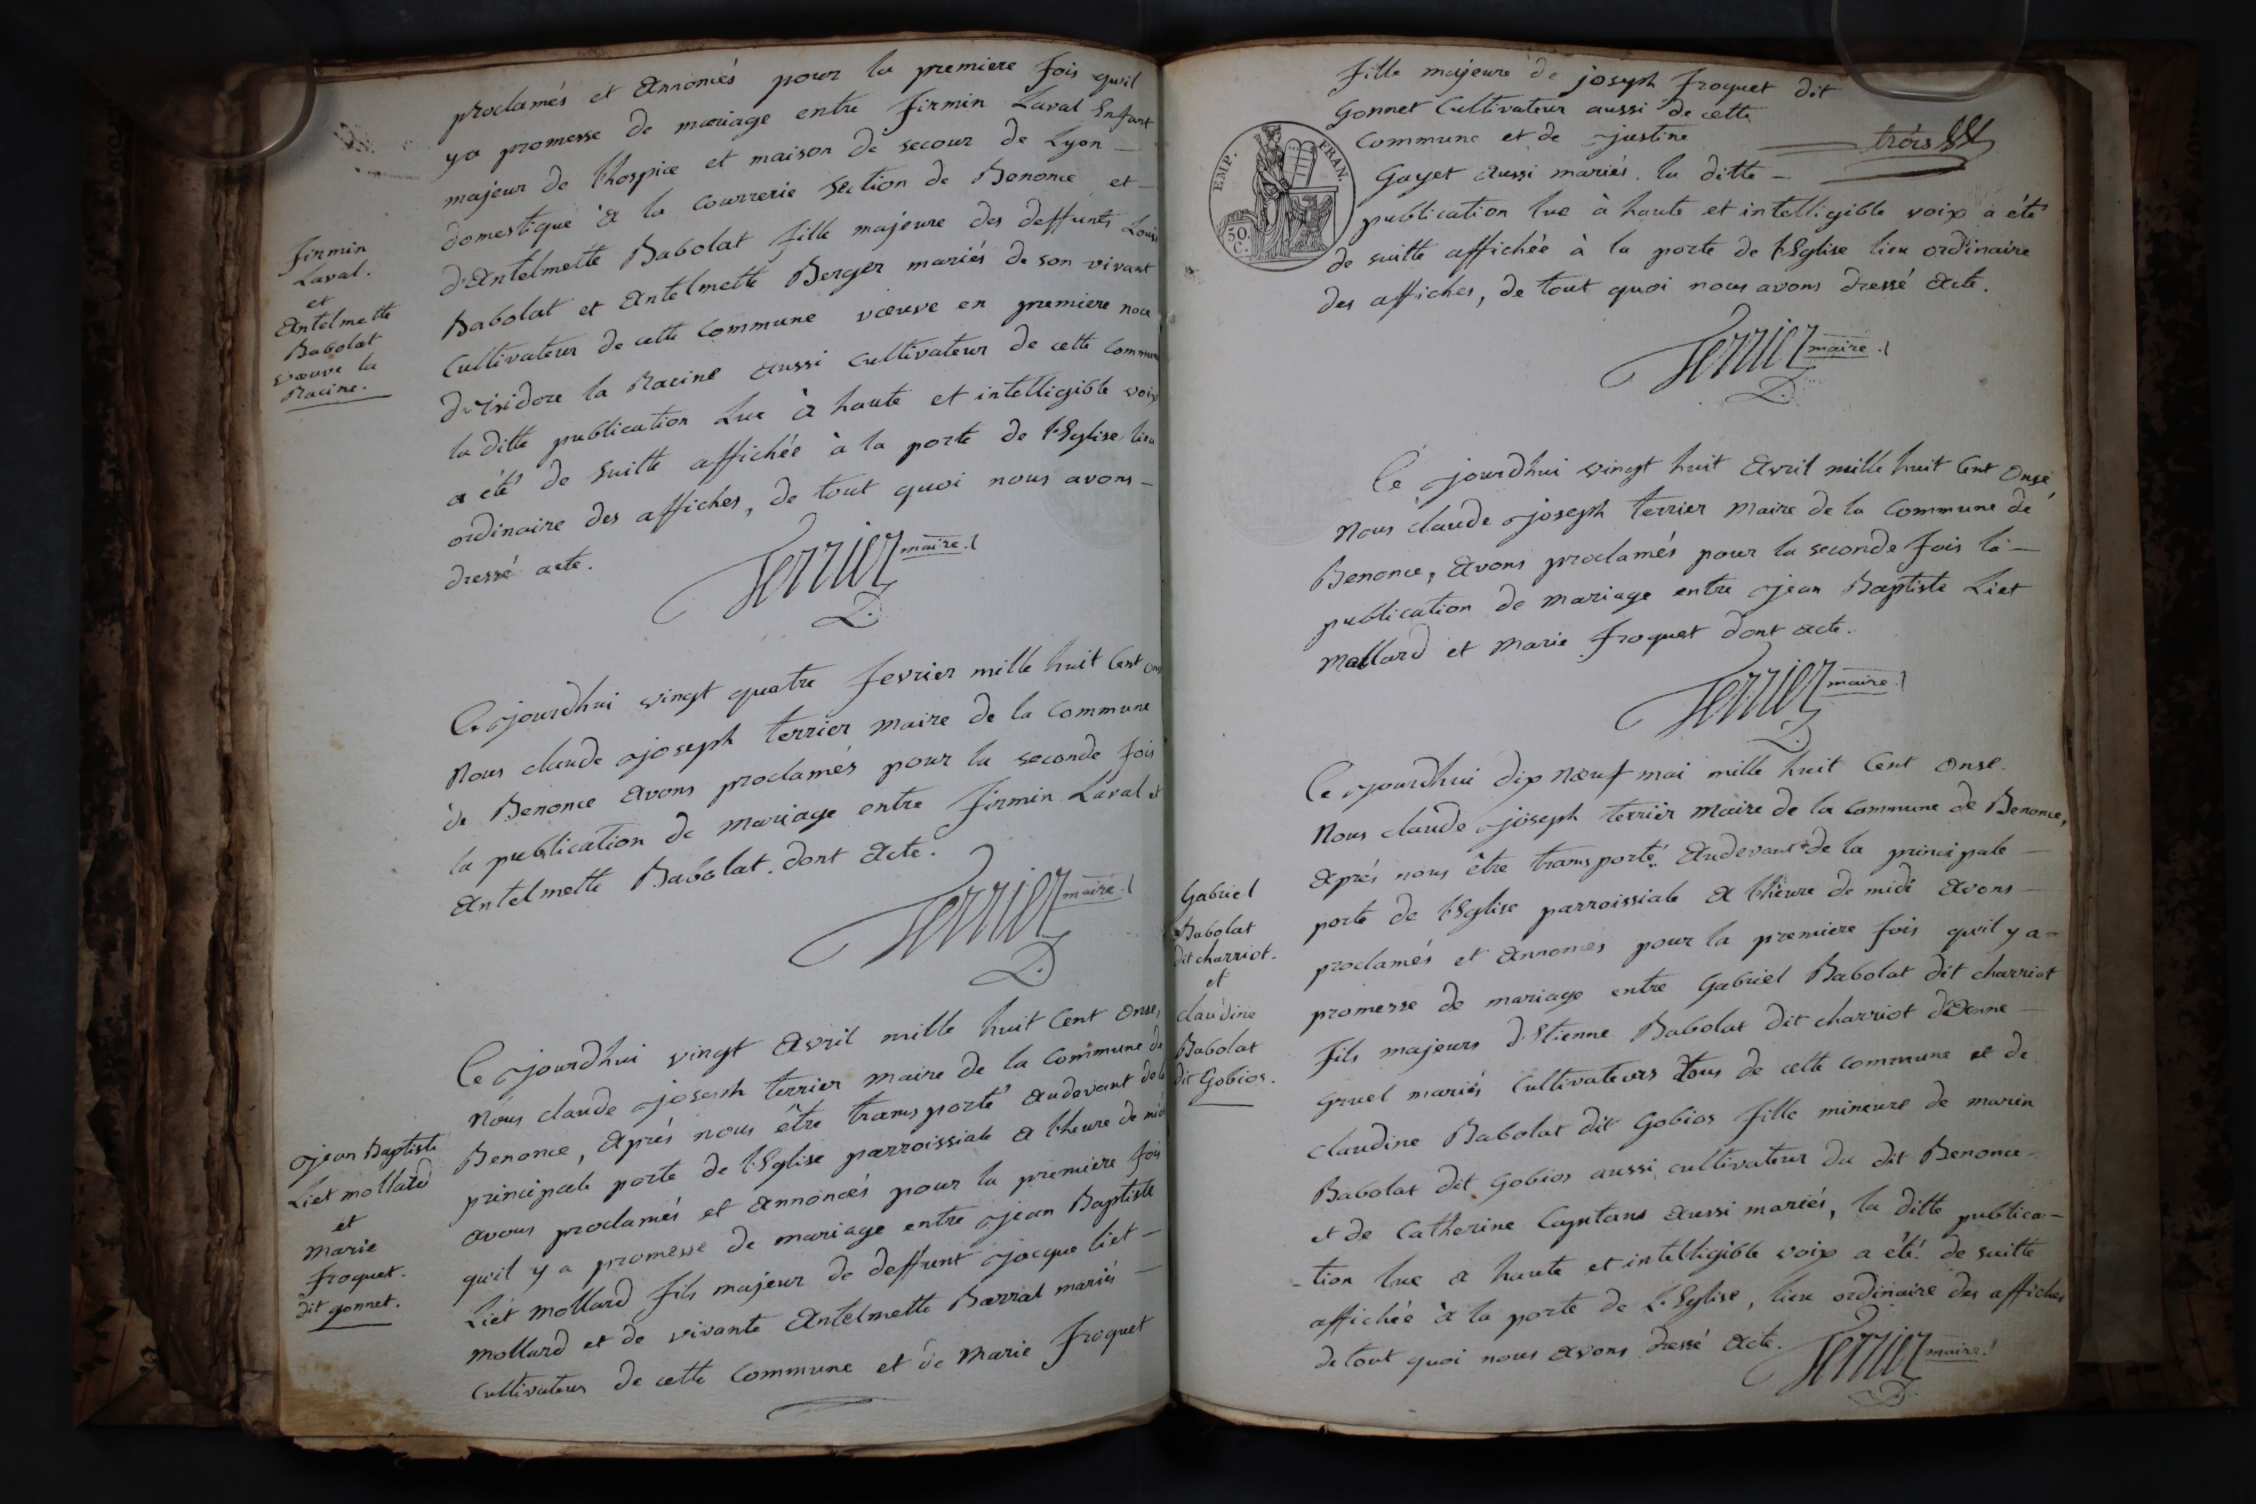 proclamés et annoncés pour la premiere fois qu'il
y a promesse de mariage entre firmin Laval Enfant
majeur de l'hospice et maison de secour de Lyon —
domestique à la courrerie section de Benonce et —
d'Antelmette Babolat fille majeure des deffunts Louis
Babolat et Antelmette Berger mariés de son vivant
Cultivateur de cette Commune vœuve en premiere noce
d'isidore la Racine aussi cultivateur de cette commune
la ditte publication Lue à haute et intelligible voix
a été de suitte affichée à la porte de l'Eglise lieu
ordinaire des affiches, de tout quoi nous avons —
dressé acte.
Terrier maire.
D.
firmin
Laval.
et
Antelmette
Babolat
vœuve la
Racine.
Ce jourdhui vingt quatre fevrier mille huit Cent onse
Nous claude joseph terrier maire de la Commune
de Benonce avons proclamés pour la seconde fois
la publication de mariage entre firmin Laval et
Antelmette Babolat. dont acte.
Terrier maire.
D.
Ce jourdhui vingt Avril mille huit Cent onse,
Nous claude joseph terrier maire de la Commune de
Benonce, Aprés nous être transporté audevant de la
principale porte de l'Eglise parroissiale a l'heure de midi
avons proclamés et annoncés pour la premiere fois
qu'il y a promesse de mariage entre jean Baptiste
Liet mollard fils majeur de deffunt jacque liet —
mollard et de vivante Antelmette Barral mariés —
Cultivateurs de cette Commune et de Marie froquet
jean Baptiste
Liet mollard
et
Marie
froquet.
dit gonnet.
fille majeure de joseph froquet dit
Gonnet Cultivateur aussi de cette
Commune et de justine
Gayet aussi mariés. la ditte —
publication lue à haute et intelligible voix a été
de suitte affichée à la porte de l'Eglise lieu ordinaire
des affiches, de tout quoi nous avons dressé acte.
trois
EMP. FRAN.
50.
C.
Terrier maire.
D.
Ce jourdhui vingt huit Avril mille huit Cent Onse
Nous claude joseph terrier Maire de la Commune de
Benonce, Avons proclamés pour la seconde fois la —
publication de mariage entre jean Baptiste Liet
Mollard et Marie froquet dont acte.
Terrier maire.
D.
Ce jourdhui dix nœuf mai mille huit Cent onse.
Nous claude joseph terrier Maire de la Commune de Benonce,
aprés nous être transporté audevant de la principale —
porte de l'Eglise parroissiale a l'heure de midi avons —
proclamés et annoncés pour la premiere fois qu'il y a =
promesse de mariage entre Gabriel Babolat dit charriot
fils majeurs d'Etienne Babolat dit charriot d'Anne —
Gruel mariés Cultivateurs tous de cette commune et de
claudine Babolat dit Gobios fille mineure de marin
Babolat dit Gobios aussi cultivateur du dit Benonce
et de Catherine Capitans aussi mariés, la ditte publica-
-tion lue a haute et intelligible voix a été de suitte
affichée à la porte de l'Eglise, lieu ordinaire des affiches
de tout quoi nous avons dressé acte. Terrier maire.
D.
Gabriel
Babolat
dit charriot.
et
claudine
Babolat
dit Gobios.